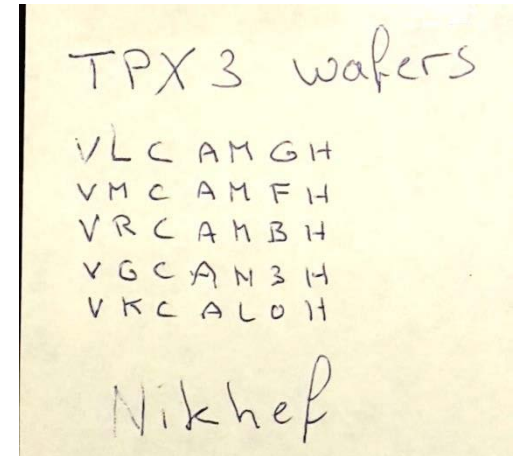 TPX3 wafers
VLCAMGH
VMCAMFH
VRCAMBH
VGCAN3H
VKCAL0H
Nikhef